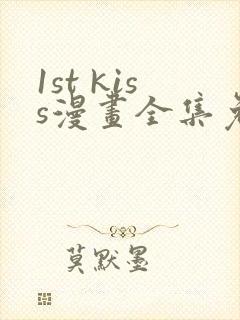 1st kis
s漫畫全集
莫默墨